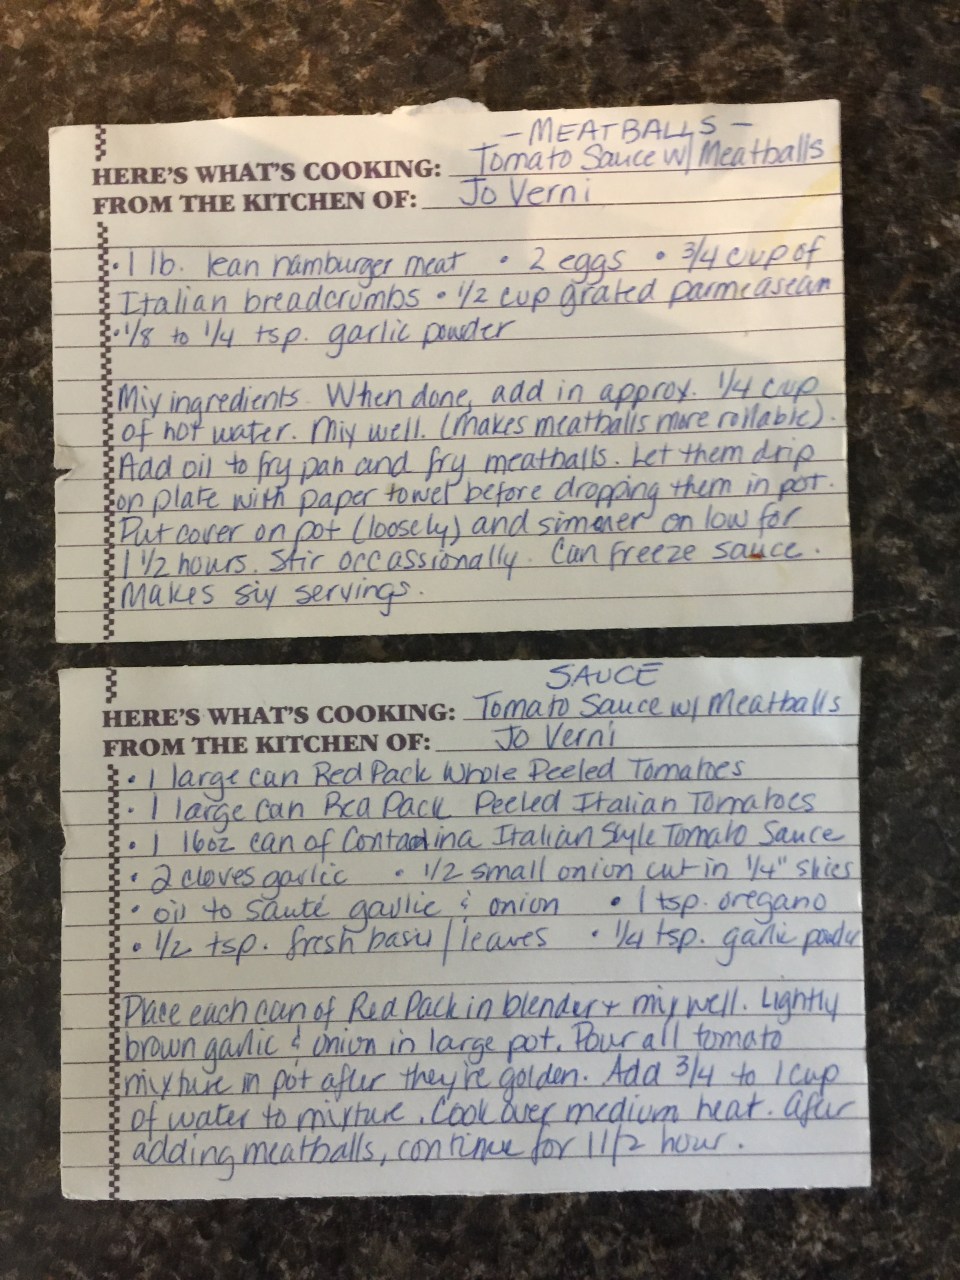 - MEATBALLS -
HERE'S WHAT'S COOKING: Tomato Sauce w/ Meatballs
FROM THE KITCHEN OF: Jo Verni
• 1 lb. lean hamburger meat • 2 eggs • 3/4 cup of
Italian breadcrumbs • 1/2 cup grated parmeasean
• 1/8 to 1/4 tsp. garlic powder
Mix ingredients. When done, add in approx. 1/4 cup
of hot water. Mix well. (Makes meatballs more rollable).
Add oil to fry pan and fry meatballs. Let them drip
on plate with paper towel before dropping them in pot.
Put cover on pot (loosely) and simmer on low for
1 1/2 hours. Stir occassionally. Can freeze sauce.
Makes six servings.
SAUCE
HERE'S WHAT'S COOKING: Tomato Sauce w/ Meatballs
FROM THE KITCHEN OF: Jo Verni
• 1 large can Red Pack Whole Peeled Tomatoes
• 1 large can Red Pack Peeled Italian Tomatoes
• 1 16oz can of Contadina Italian Style Tomato Sauce
• 2 cloves garlic • 1/2 small onion cut in 1/4" slices
• oil to sauté garlic & onion • 1 tsp. oregano
• 1/2 tsp. fresh basil/leaves • 1/4 tsp. garlic powder
Place each can of Red Pack in blender + mix well. Lightly
brown garlic & onion in large pot. Pour all tomato
mixture in pot after they're golden. Add 3/4 to 1 cup
of water to mixture. Cook over medium heat. After
adding meatballs, continue for 1 1/2 hour.